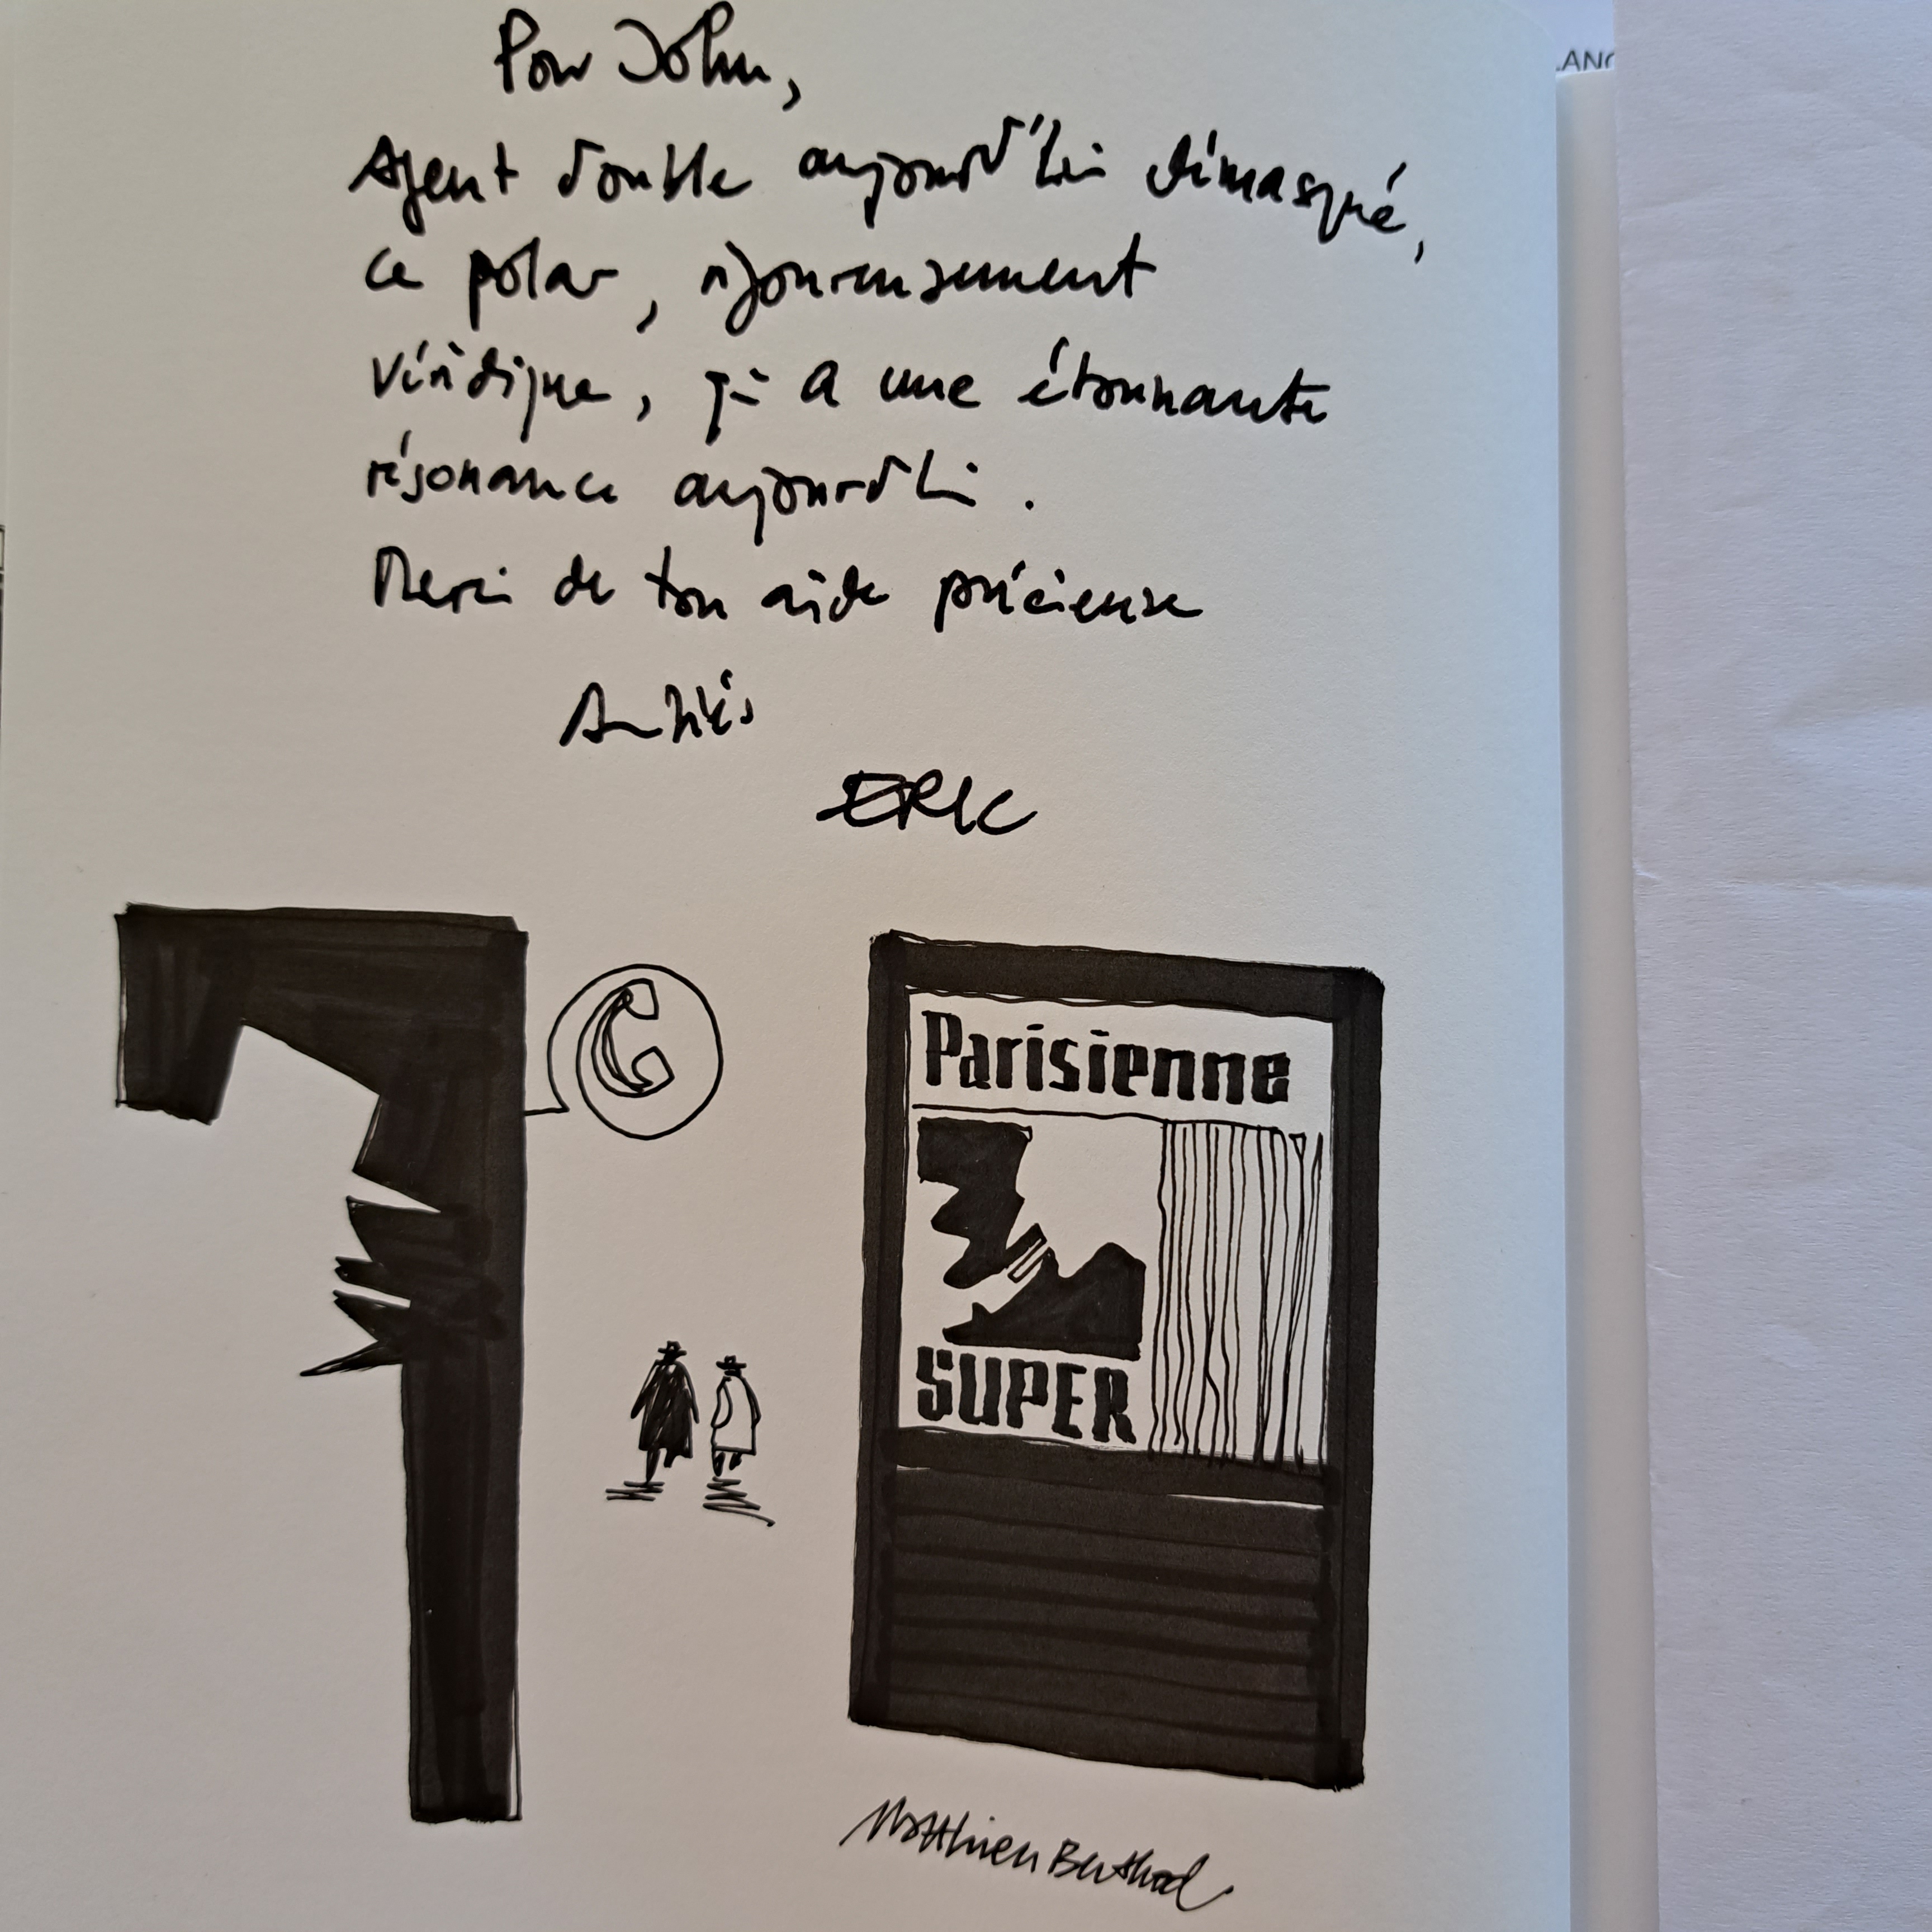 Pour John,
LANG
Agent double aujourd'hui démasqué,
ce polar, rigoureusement
véridique, qui a une étonnante
résonance aujourd'hui.
Merci de ton aide précieuse
Amitiés
ERIC
Parisienne
SUPER
Matthieu Berthod